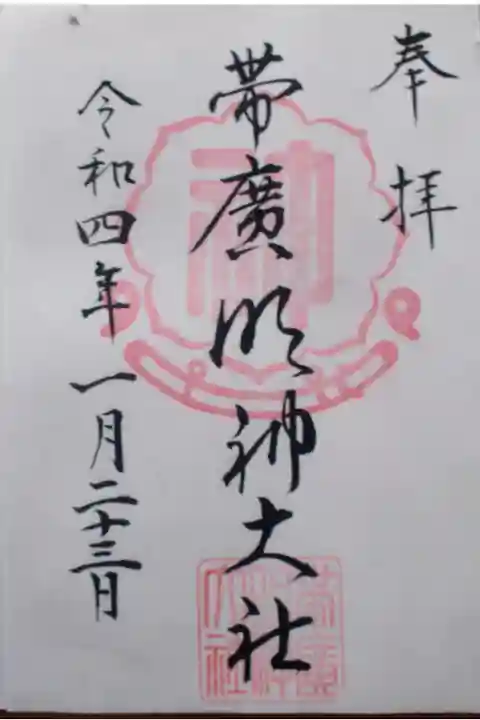 奉拝
帯廣明神大社
令和四年一月二十三日